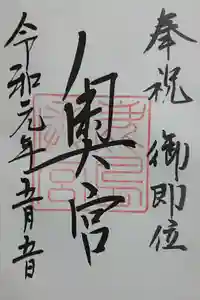 奉祝 御即位
奥宮
令和元年五月五日